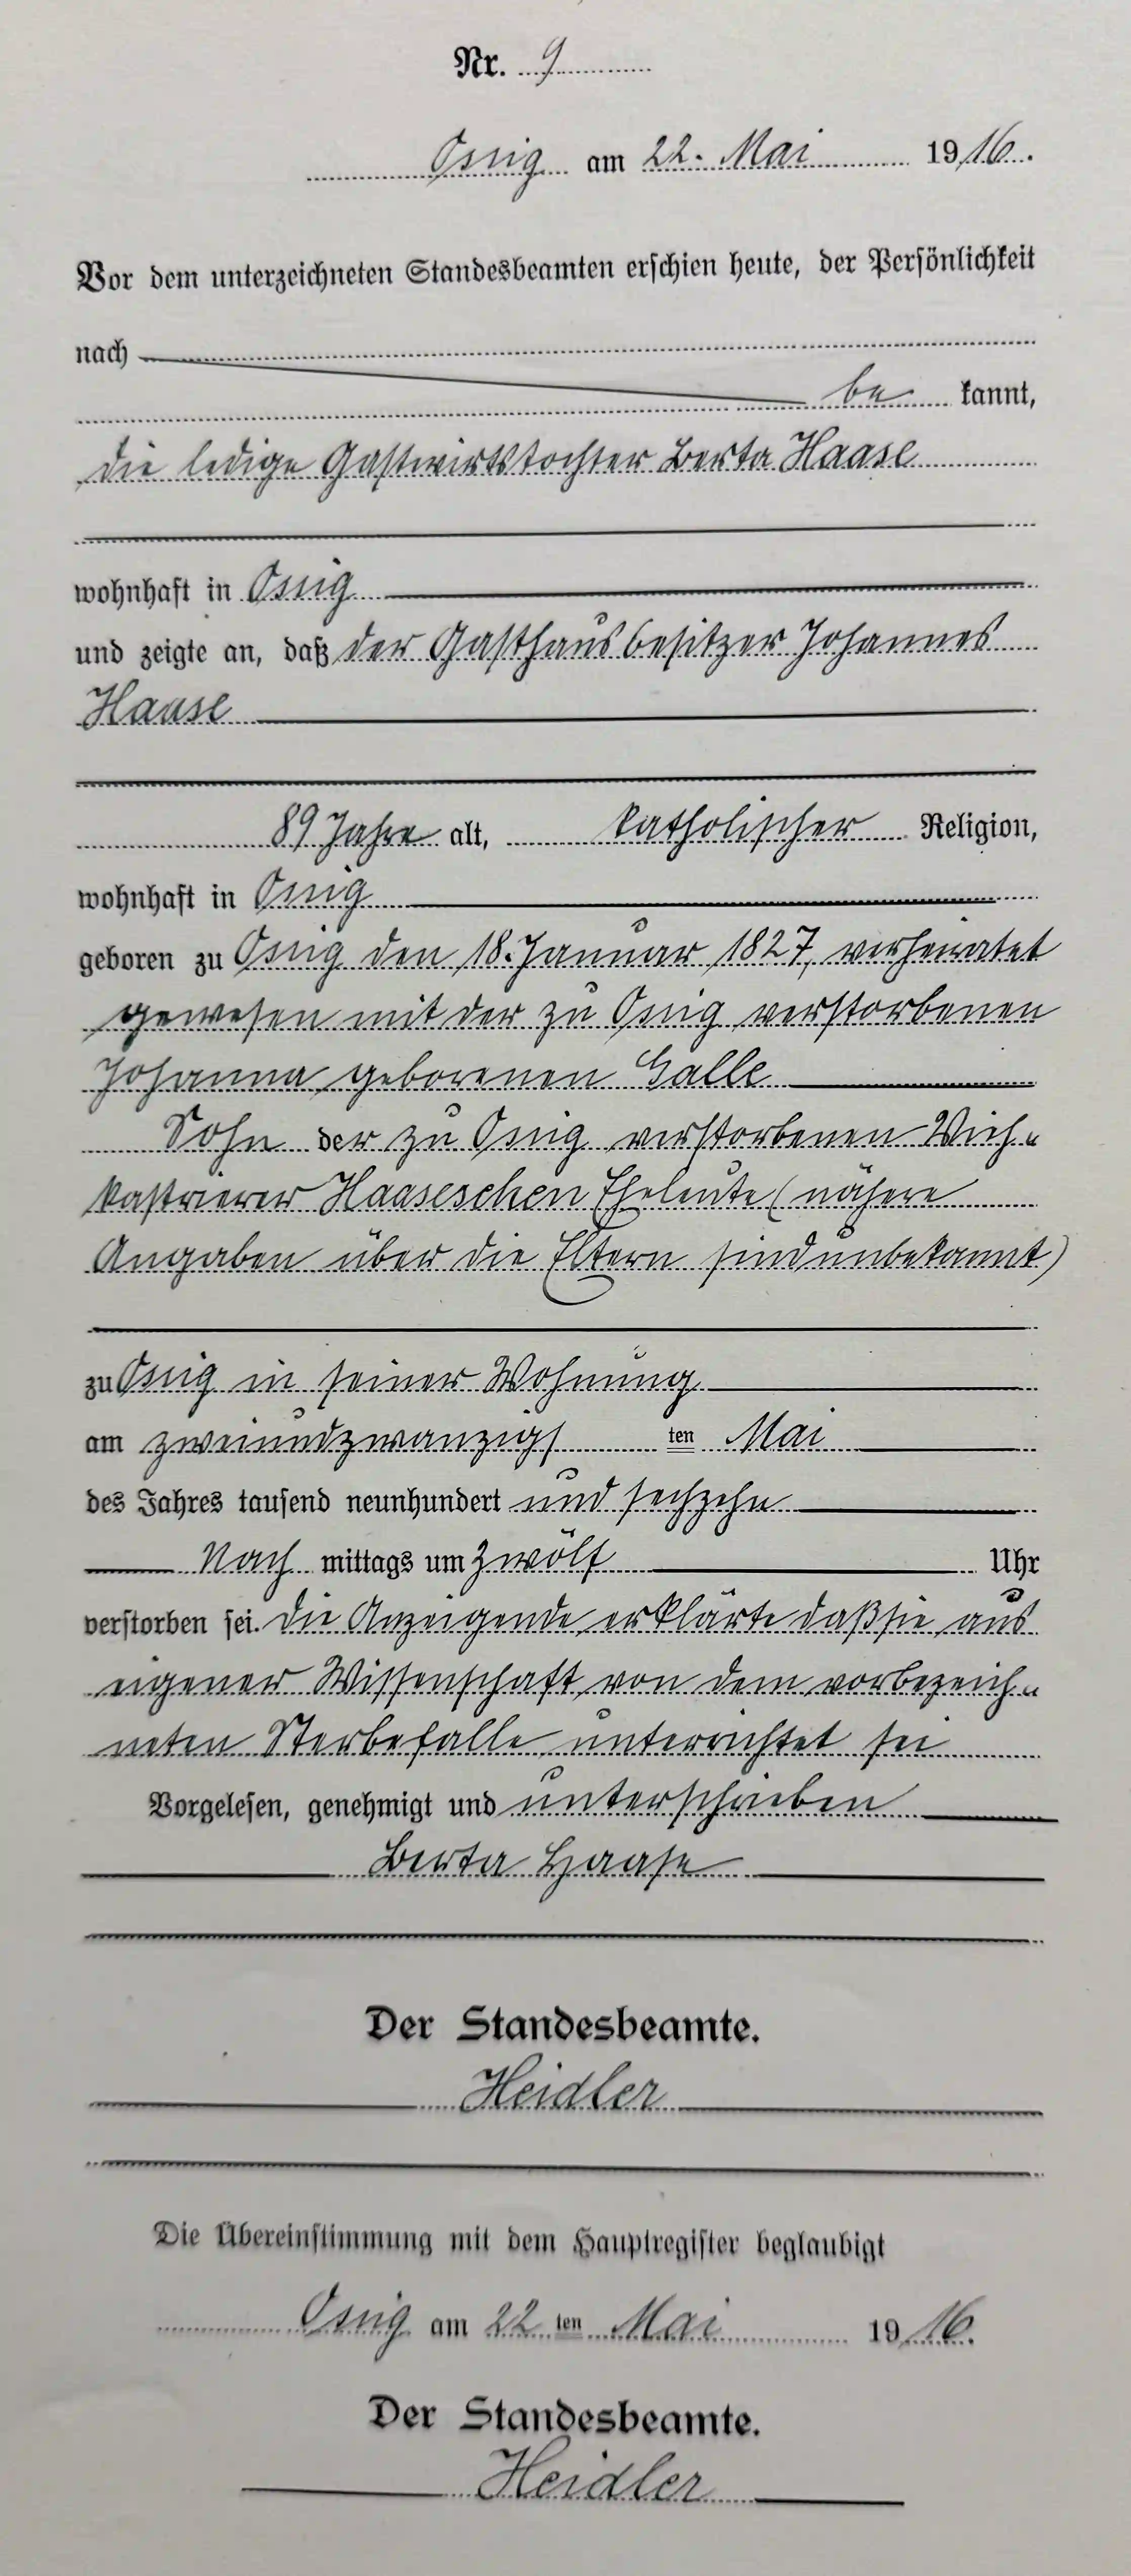 Nr. 9
Ossig am 22. Mai 1916.
Vor dem unterzeichneten Standesbeamten erschien heute, der Persönlichkeit
nach
be kannt,
die ledige Gastwirtstochter Berta Haase
wohnhaft in Ossig
und zeigte an, daß der Gasthausbesitzer Johannes
Haase
89 Jahre alt, katholischer Religion,
wohnhaft in Ossig
geboren zu Ossig den 18. Januar 1827, verheiratet
gewesen mit der zu Ossig verstorbenen
Johanna geborenen Galle
Sohn der zu Ossig verstorbenen Vieh-
kastrierer Haaseschen Eheleute (nähere
Angaben über die Eltern sind unbekannt)
zu Ossig in seiner Wohnung
am zweiundzwanzigs ten Mai
des Jahres tausend neunhundert und sechzehn
Nach mittags um zwölf Uhr
verstorben sei. Die Anzeigende erklärte daß sie aus
eigener Wissenschaft von dem vorbezeich-
neten Sterbefalle unterrichtet sei
Vorgelesen, genehmigt und unterschrieben
Berta Haase
Der Standesbeamte.
Heidler
Die Übereinstimmung mit dem Hauptregister beglaubigt
Ossig am 22 ten Mai 1916.
Der Standesbeamte.
Heidler